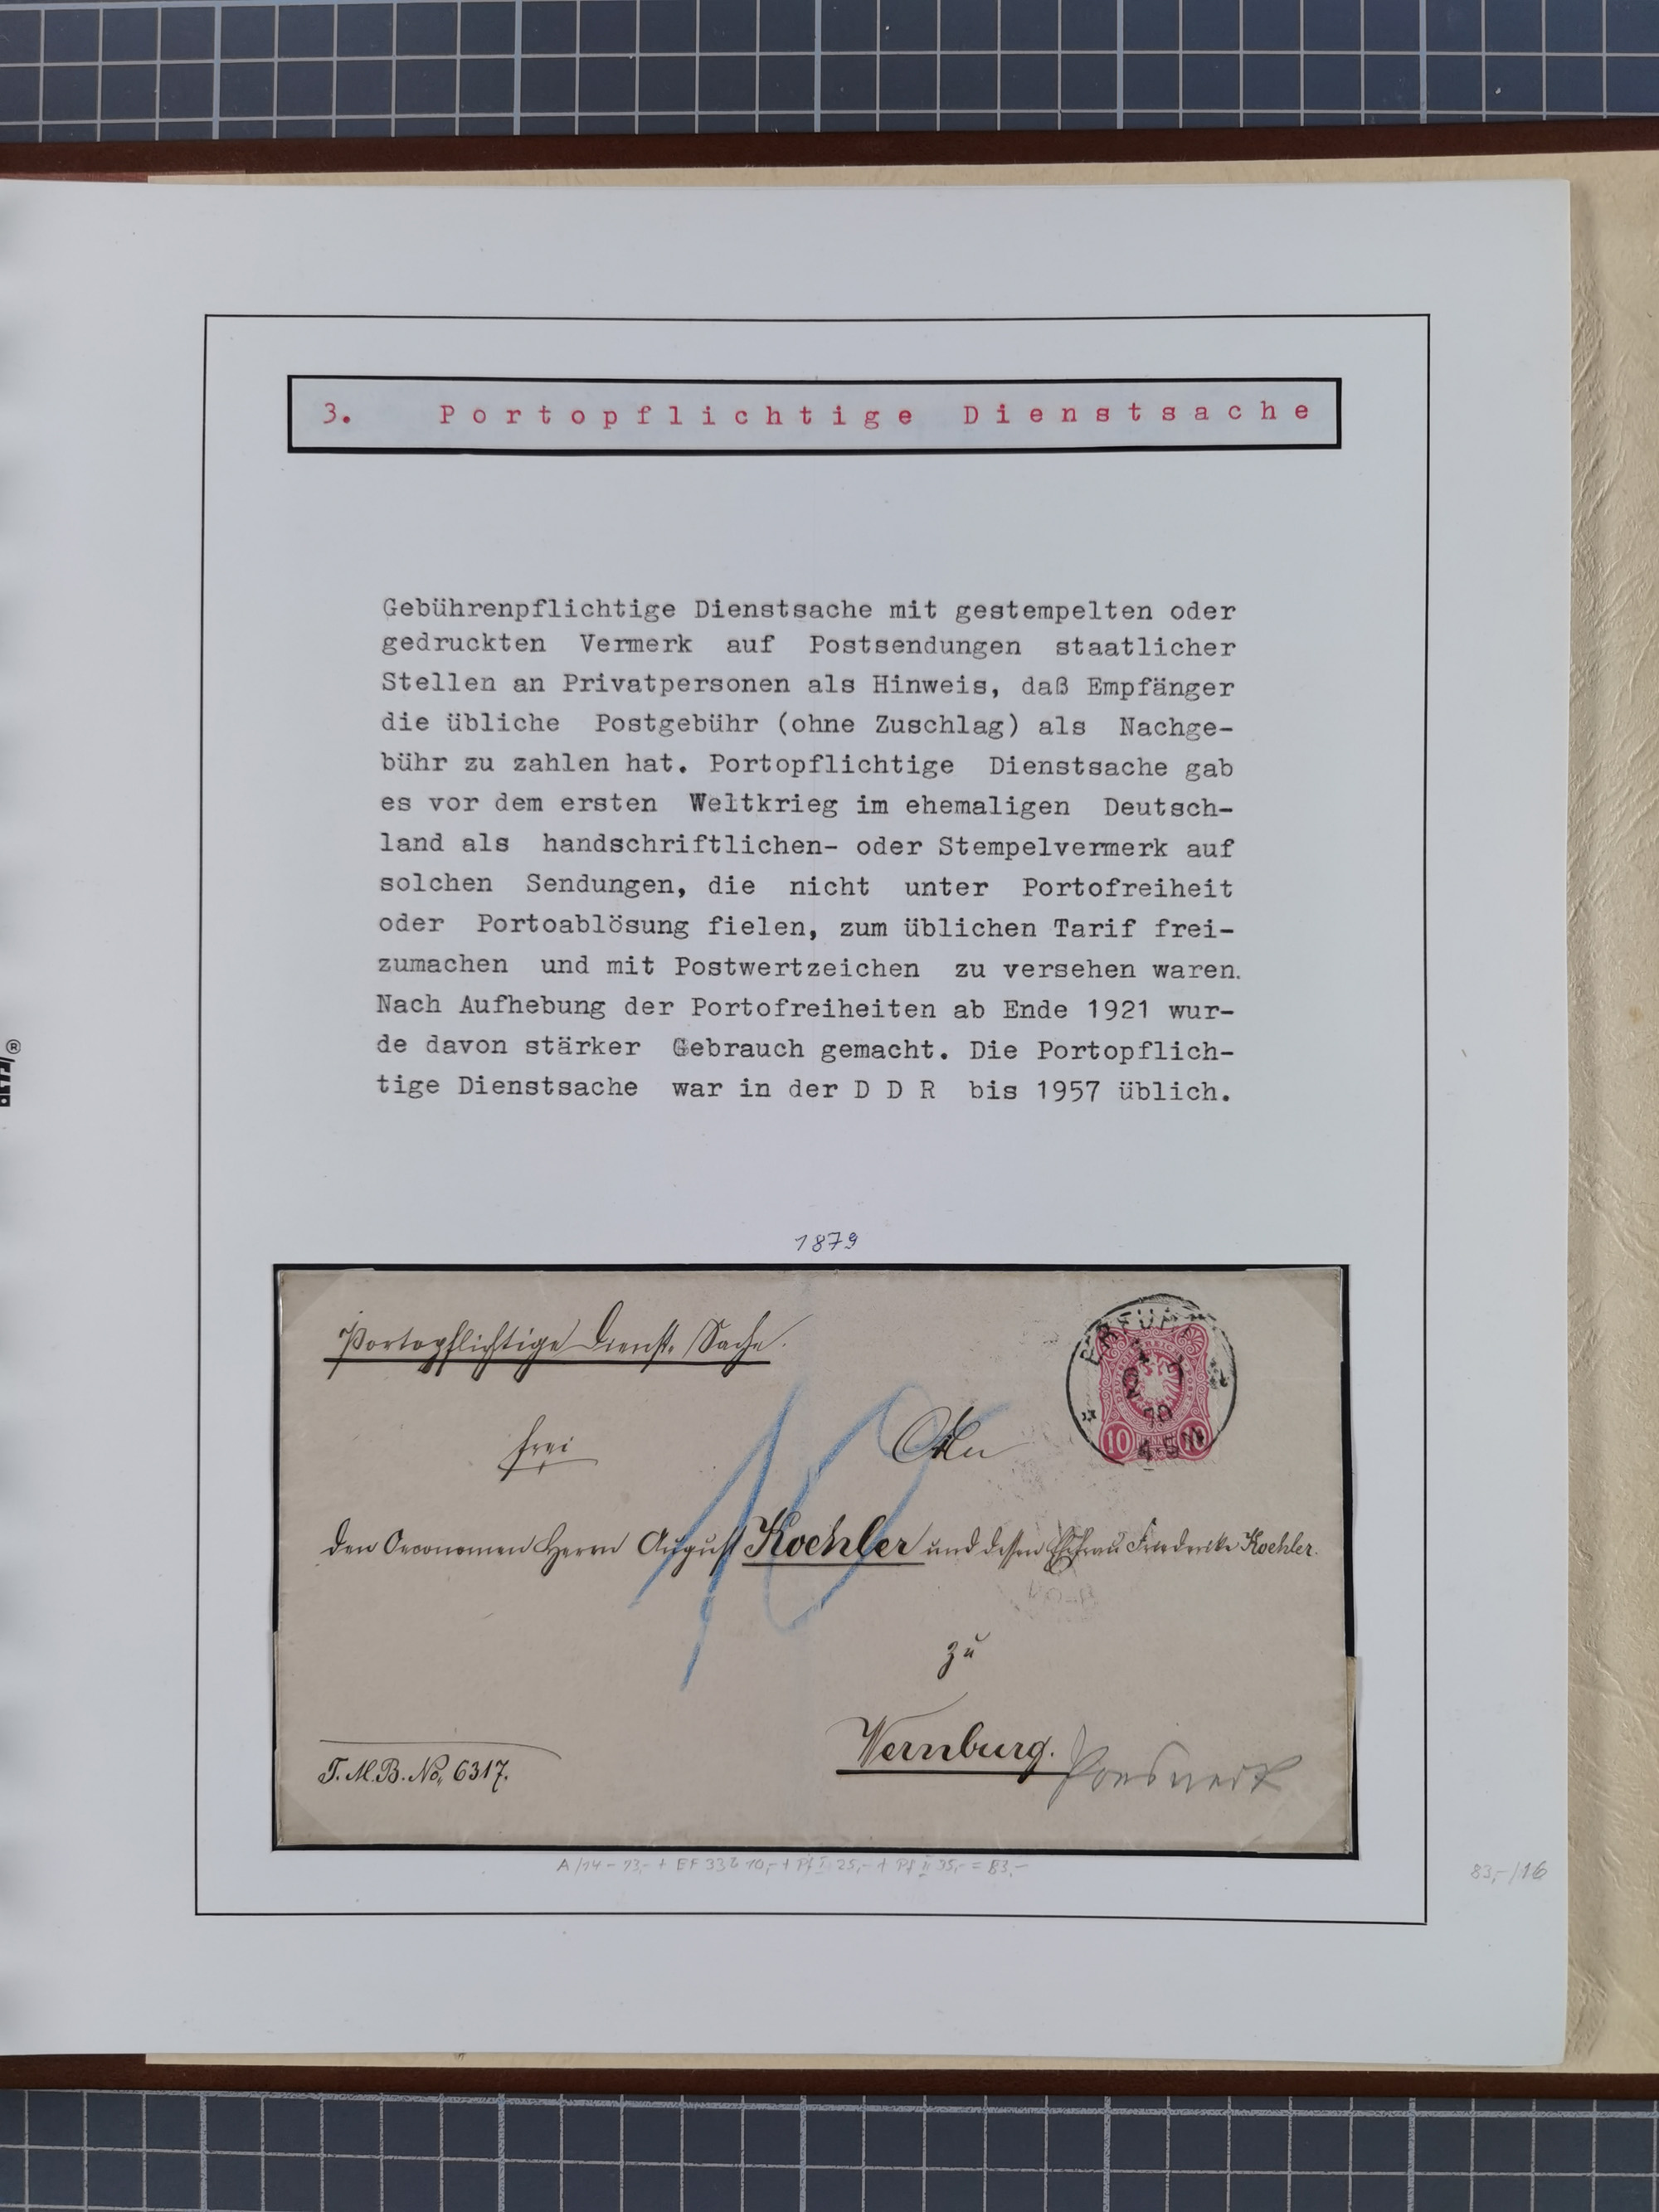 3. Portopflichtige Dienstsache
Gebührenpflichtige Dienstsache mit gestempelten oder
gedruckten Vermerk auf Postsendungen staatlicher
Stellen an Privatpersonen als Hinweis, daß Empfänger
die übliche Postgebühr (ohne Zuschlag) als Nachge-
bühr zu zahlen hat. Portopflichtige Dienstsache gab
es vor dem ersten Weltkrieg im ehemaligen Deutsch-
land als handschriftlichen- oder Stempelvermerk auf
solchen Sendungen, die nicht unter Portofreiheit
oder Portoablösung fielen, zum üblichen Tarif frei-
zumachen und mit Postwertzeichen zu versehen waren.
Nach Aufhebung der Portofreiheiten ab Ende 1921 wur-
de davon stärker Gebrauch gemacht. Die Portopflich-
tige Dienstsache war in der D D R bis 1957 üblich.
1879
Portopflichtige Dienst-Sache.
ERFURT
10 10
frei
An
10
den Oeconomen Herrn August Koehler und dessen Ehefrau Friederike Koehler.
zu
Wernburg.
T.M.B.No. 6317.
A/14 - 13,- + EF 33b 10,- + Pf I 25,- + Pf II 35,- = 83,-
83,-/16